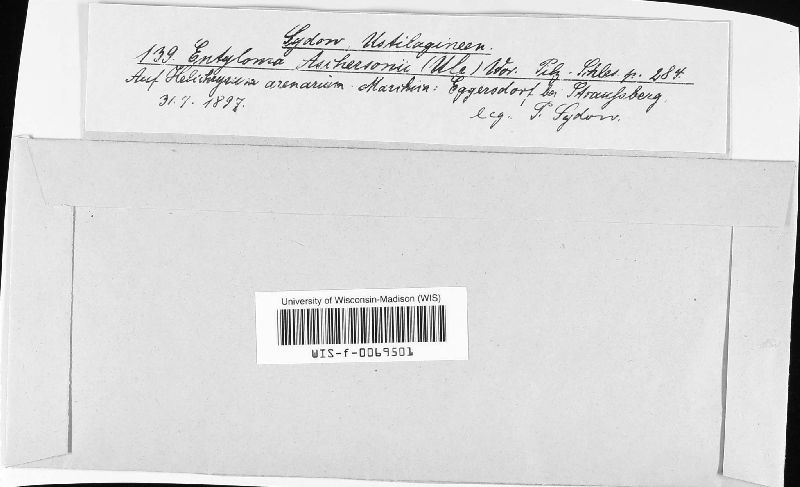 Sydow, Ustilagineen.
139. Entyloma Aschersonii (Ule) Wor. Pilz. Schles p. 284.
Auf Helichrysum arenarium. Marchia: Eggersdorf bei Straußberg.
31.7. 1897. leg. P. Sydow.
University of Wisconsin-Madison (WIS)
WIS-f-0069501